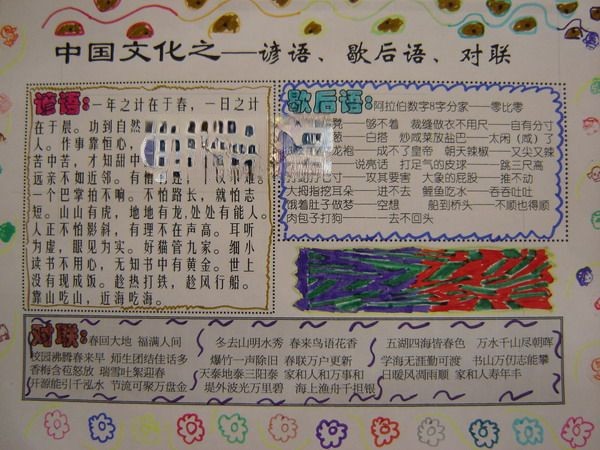 中国文化之——谚语、歇后语、对联
谚语：一年之计在于春，一日之计
在于晨。功到自然
人。作事靠恒心，
苦中苦，才知甜中
远亲不如近邻。有借有
一个巴掌拍不响。不怕路长，就怕志
短。山山有虎，地地有龙，处处有能人。
人正不怕影斜，有理不在声高。耳听
为虚，眼见为实。好猫管九家。细小
读书不用心，无知书中有黄金。世上
没有现成饭。趁热打铁，趁风行船。
靠山吃山，近海吃海。
歇后语：阿拉伯数字8字分家——零比零
凳——够不着 裁缝做衣不用尺——自有分寸
葱——白搭 炒咸菜放盐巴——太闲（咸）了
龙袍——成不了皇帝 朝天辣椒——又尖又辣
——说亮话 打足气的皮球——跳三尺高
方寸——攻其要害 大象的屁股——推不动
大拇指挖耳朵——进不去 鲤鱼吃水——吞吞吐吐
饿着肚子做梦——空想 船到桥头——不顺也得顺
肉包子打狗——去不回头
对联：春回大地 福满人间 冬去山明水秀 春来鸟语花香 五湖四海皆春色 万水千山尽朝晖
校园沸腾春来早 师生团结佳话多 爆竹一声除旧 春联万户更新 学海无涯勤可渡 书山万仞志能攀
香梅含苞怒放 瑞雪吐絮迎春 天泰地泰三阳泰 家和人和万事和 日暖风调雨顺 家和人寿年丰
开源能引千泓水 节流可聚万盘金 堤外波光万里碧 海上渔舟千担银